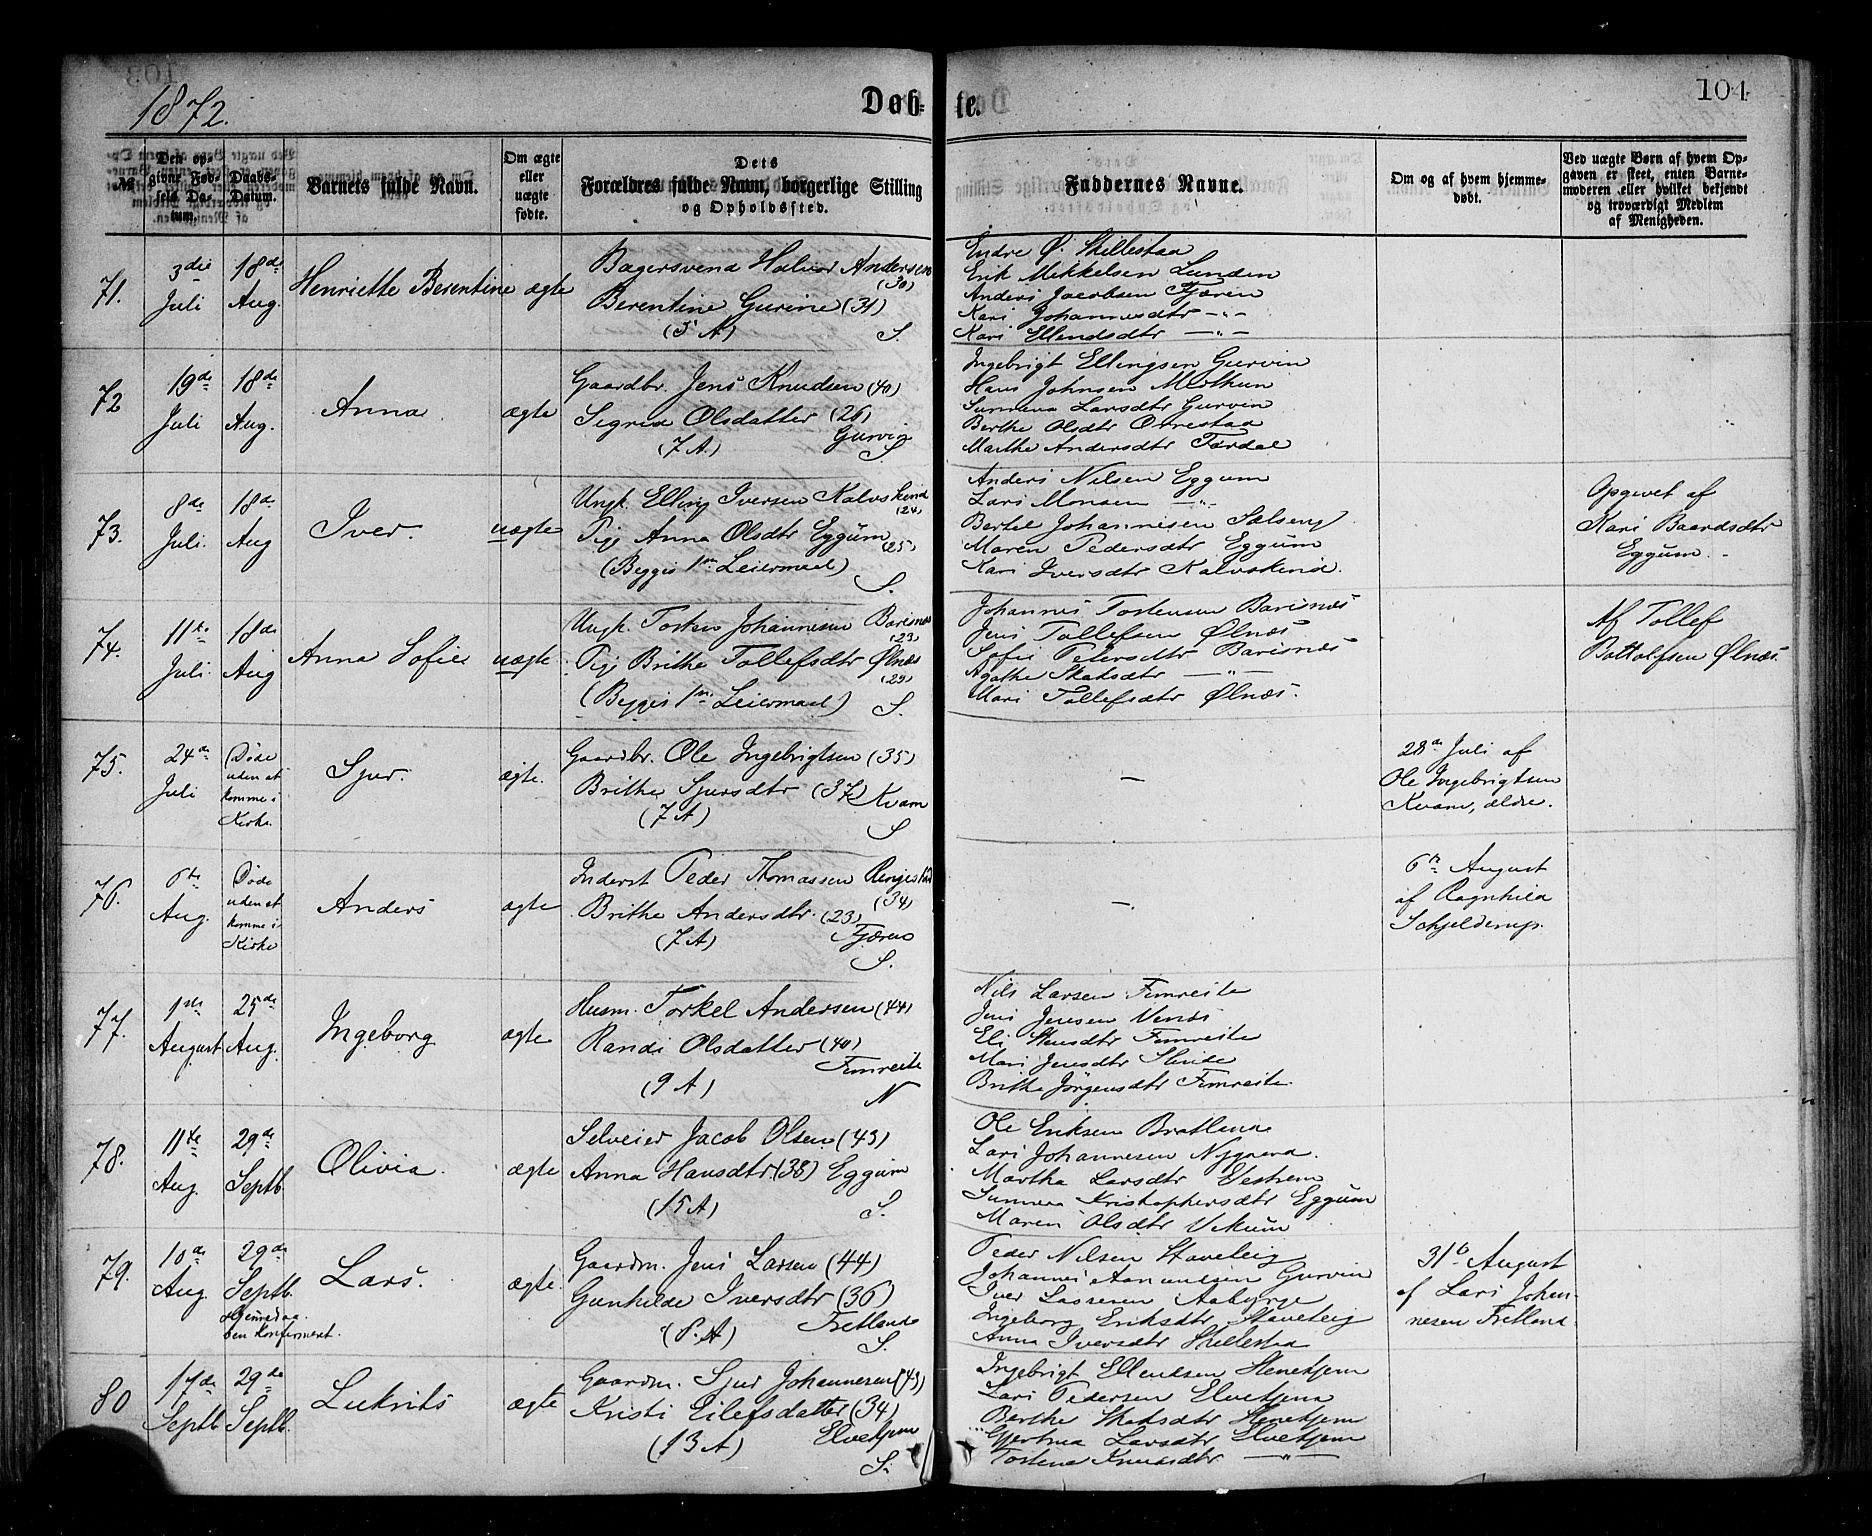 1872.
Døb-
te.
104
№
Den op-
givne Fød-
sels Da-
tum.
Daabs-
Datum.
Barnets fulde Navn.
Om ægte
eller
uægte
fødte.
Dets
Forældres fulde Navn, borgerlige Stilling
og Opholdssted.
Faddernes Navne.
Om og af hvem hjemme-
døbt.
Ved uægte Børn af hvem Op-
gaven er skeet, enten Barne-
moderen eller hvilket bekjendt
og troværdigt Medlem
af Menigheden.
71.
3die
Juli
18de
Aug.
Henriette Berentine
ægte
Bagersvend Halvor Andersen
(30)
Berentine Gurine (31)
(5 A)
S.
Endre Ø. Skillestaa
Erik Mikkelsen Lunden
Anders Jacobsen Fjæren
Kari Johannesdtr —"—
Kari Ellendsdtr —"—
72
19de
Juli
18de
Aug.
Anna
ægte
Gaardbr. Jens Knudsen (40)
Sigrid Olsdatter (26)
Gurvin
(7 A.)
S.
Ingebrigt Ellingsen Gurvin
Hans Johnsen
Sunneva Larsdtr Gurvin
Berthe Olsdtr
Marthe Andersdtr
73.
8de
Juli.
18de
Aug
Iver.
uægte
Ungk. Elling Iversen Kalvskind
(24)
Pige Anna Olsdtr Eggum
(25)
(Begges 1ste Leiermaal)
S.
Anders Nilsen Eggum
Lars Monsen —"—
Bertel Johannesen
Maren Pedersdtr Eggum
Kari Iversdtr Kalvskind.
Opgivet af
Kari Baardsdtr
Eggum.
74.
11te
Juli.
18de
Aug
Anna Sofie
uægte
Ungk. Torsten Johannesen Barsnæs
(23)
Pige Brithe Tollefsdtr Ølnæs
(29)
(Begges 1ste Leiermaal)
S.
Johannes Torstensen Barsnæs
Jens Tollefsen Ølnæs
Sofie Petersdtr Barsnæs
Agathe Skatsdtr —"—
Mari Tollefsdtr Ølnæs.
Af Tollef
Bottolfsen Ølnæs.
75.
24de
Juli
(Døde
uden at
komme i
Kirke.
Sjur.
ægte.
Gaardbr. Ole Ingebrigtsen (35)
Brithe Sjursdtr (37) Kvam
(7 A)
S
—
28de Juli af
Ole Ingebrigtsen
Kvam, ældre.
76.
6te
Aug.
Døde
uden at
komme i
Kirke
Anders
ægte
Inderst Peder Thomassen
(34)
Brithe Andersdtr. (23)
Fjæren
(7 A)
S.
—
6te August
af Ragnhild
Schjelderup.
77.
1ste
August
25de
Aug.
Ingeborg
ægte
Husm. Torkel Andersen (44)
Randi Olsdatter (40)
Fimreite
(9 A)
N
Nils Larsen Fimreite
Jens Jensen Venæs
Eli Stensdtr Fimreite
Mari Jensdtr Slinde
Brithe Jörgensdtr Fimreite.
78.
11te
Aug.
29de
Septb.
Olivia.
ægte
Selveier Jacob Olsen (43)
Anna Hansdtr (38) Eggum
(15 A)
S.
Ole Eriksen Bratlend
Lars Johannesen Nygaard.
Martha Larsdtr
Sunneva Kristophersdtr Eggum
Maren Olsdtr Vikum
79.
10de
Aug.
29de
Septb.
Hjemmedaa-
ben konfirmeret.
Lars.
ægte.
Gaardm. Jens Larsen (44)
Gunhilde Iversdtr (36)
Fretland
(8 A)
S.
Peder Nilsen Staveteig
Johannes Aamundsen Gurvin
Iver Lassesen Aaberge
Ingeborg Eriksdtr Staveteig
Anna Iversdtr Skillestaa
31te August
af Lars Johan-
nesen Fretland.
80
17de
Septb.
29de
Septb.
Lukrits
ægte
Gaardm. Sjur Johannesen (43)
Kristi Eilefsdatter (34)
Elvekjem
(13 A)
S.
Ingebrigt Ellendsen Henekjem
Lars Pedersen Elvekjem
Berthe Skatsdtr Henekjem
Gjertrud Larsdtr Elvekjem
Torstena Knudsdtr —"—